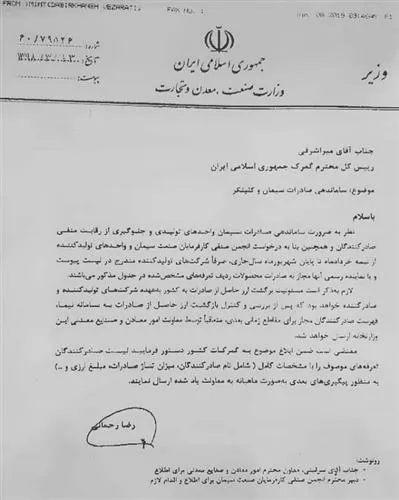 FROM :MIMT(DABIRKHANEH VEZARATI) FAX NO. :
Jun. 08 2019 09:46AM P1
جمهوری اسلامی ایران
وزارت صنعت، معدن و تجارت
وزیر
شماره: ۶۰/۷۹۵۲۶
تاریخ:
پیوست:
جناب آقای میراشرفی
رییس کل محترم گمرک جمهوری اسلامی ایران
موضوع: ساماندهی صادرات سیمان و کلینکر
باسلام
نظر به ضرورت ساماندهی صادرات سیمان واحدهای تولیدی و جلوگیری از رقابت منفی
صادرکنندگان و همچنین بنا به درخواست انجمن صنفی کارفرمایان صنعت سیمان و واحدهای تولیدکننده از
نیمه خردادماه تا پایان شهریورماه سال‌جاری، صرفاً شرکت‌های تولیدکننده مندرج در لیست پیوست
و یا نماینده رسمی آنها مجاز به صادرات محصولات ردیف تعرفه‌های مشخص‌شده در جدول مذکور می‌باشند.
لازم به‌ذکر است مسئولیت برگشت ارز حاصل از صادرات به کشور به‌عهده شرکت‌های تولیدکننده و
صادرکننده خواهد بود که پس از بررسی و کنترل بازگشت ارز حاصل از صادرات به سامانه نیما،
فهرست صادرکنندگان مجاز برای مقاطع زمانی بعدی، متعاقباً توسط معاونت امور معادن و صنایع معدنی این
وزارتخانه ارسال خواهد شد.
مقتضی است ضمن ابلاغ موضوع به گمرکات کشور دستور فرمایید لیست صادرکنندگان
تعرفه‌های موصوف را با مشخصات کامل ( شامل نام صادرکنندگان، میزان تناژ صادرات، مبلغ ارزی و ..)
به منظور پیگیری‌های بعدی به‌صورت ماهیانه به معاونت یاد شده ارسال نمایند.
رضا رحمانی
رونوشت:
جناب آقای سرقینی، معاون محترم امور معادن و صنایع معدنی برای اطلاع
دبیر محترم انجمن صنفی کارفرمایان صنعت سیمان برای اطلاع و اقدام لازم